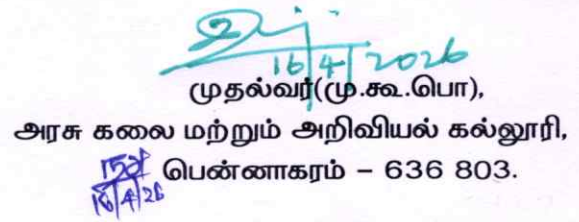 16/4/2026
முதல்வர்(மு.கூ.பொ),
அரசு கலை மற்றும் அறிவியல் கல்லூரி,
பென்னாகரம் – 636 803.
16/4/26